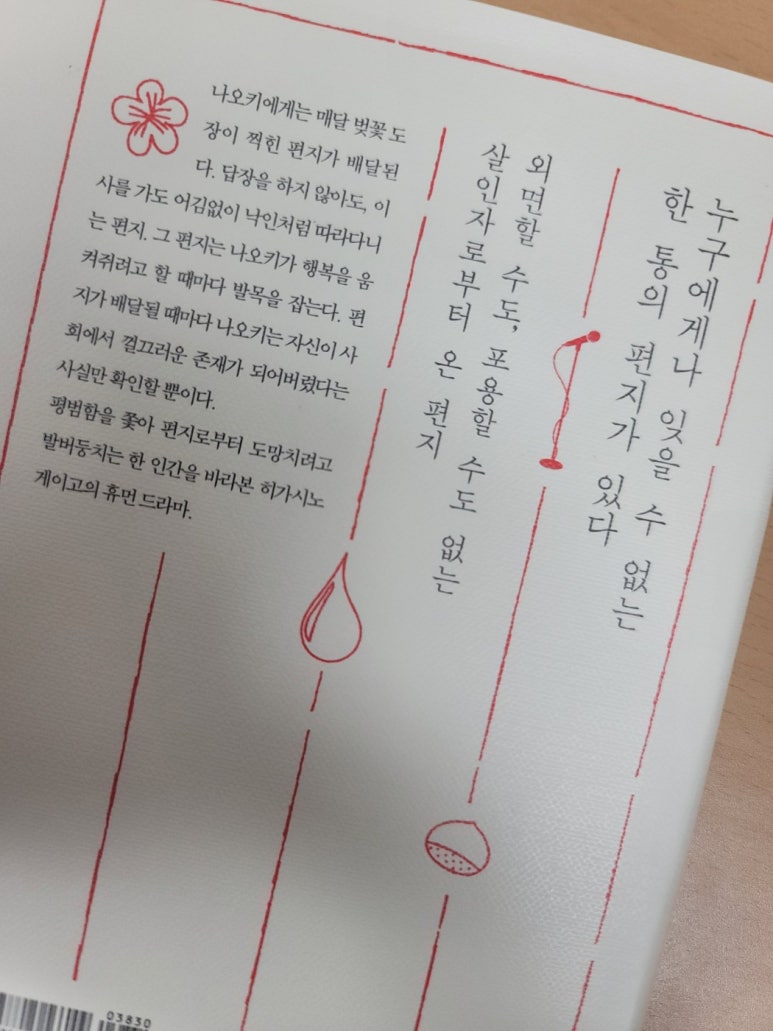 누구에게나 잊을 수 없는
한 통의 편지가 있다
외면할 수도, 포용할 수도 없는
살인자로부터 온 편지
나오키에게는 매달 벚꽃 도
장이 찍힌 편지가 배달된
다. 답장을 하지 않아도, 이
사를 가도 어김없이 낙인처럼 따라다니
는 편지. 그 편지는 나오키가 행복을 움
켜쥐려고 할 때마다 발목을 잡는다. 편
지가 배달될 때마다 나오키는 자신이 사
회에서 껄끄러운 존재가 되어버렸다는
사실만 확인할 뿐이다.
평범함을 쫓아 편지로부터 도망치려고
발버둥치는 한 인간을 바라본 히가시노
게이고의 휴먼 드라마.
03830